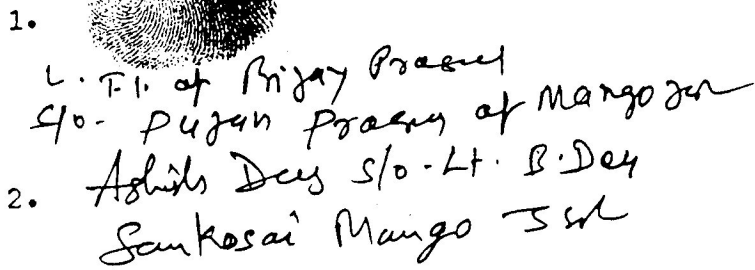 1.
L.T.I. of Bijay Prasad
S/o- Pujan Prasad of Mango Jsr
2. Ashish Dey S/o-Lt. B.Dey
Sankosai Mango Jsr